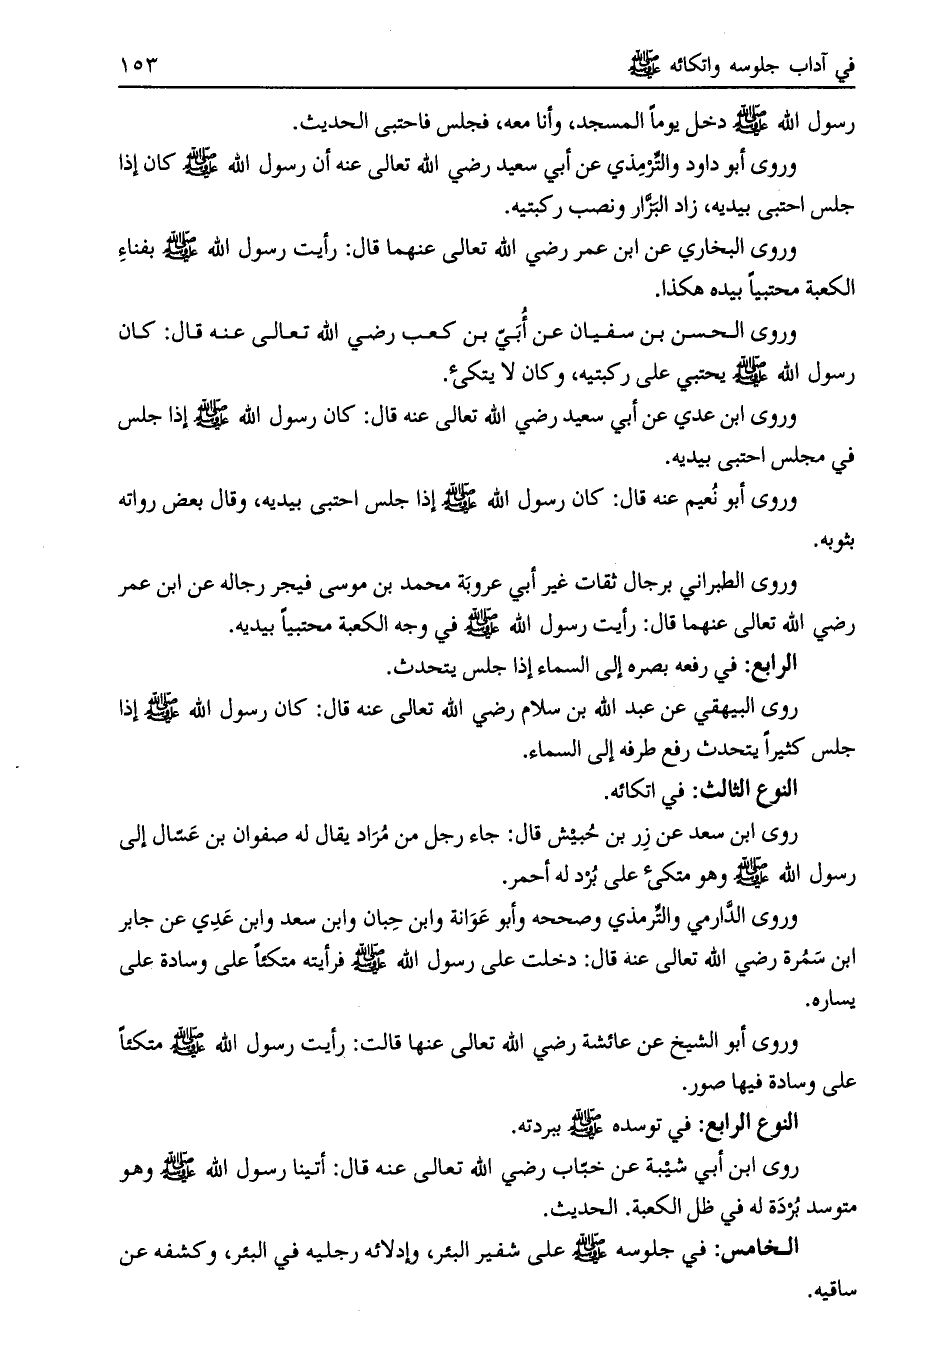 في آداب جلوسه واتكائه ﷺ ١٥٣
رسول الله ﷺ دخل يوماً المسجد، وأنا معه، فجلس فاحتبى الحديث.
وروى أبو داود والتِّرْمِذي عن أبي سعيد رضي الله تعالى عنه أن رسول الله ﷺ كان إذا
جلس احتبى بيديه، زاد البَزَّار ونصب ركبتيه.
وروى البخاري عن ابن عمر رضي الله تعالى عنهما قال: رأيت رسول الله ﷺ بفناءِ
الكعبة محتبياً بيده هكذا.
وروى الحسن بن سفيان عن أُبَيّ بن كعب رضي الله تعالى عنه قال: كان
رسول الله ﷺ يحتبي على ركبتيه، وكان لا يتكىء.
وروى ابن عدي عن أبي سعيد رضي الله تعالى عنه قال: كان رسول الله ﷺ إذا جلس
في مجلس احتبى بيديه.
وروى أبو نُعيم عنه قال: كان رسول الله ﷺ إذا جلس احتبى بيديه، وقال بعض رواته
بثوبه.
وروى الطبراني برجال ثقات غير أبي عروبَة محمد بن موسى فيجر رجاله عن ابن عمر
رضي الله تعالى عنهما قال: رأيت رسول الله ﷺ في وجه الكعبة محتبياً بيديه.
الرابع: في رفعه بصره إلى السماء إذا جلس يتحدث.
روى البيهقي عن عبد الله بن سلام رضي الله تعالى عنه قال: كان رسول الله ﷺ إذا
جلس كثيراً يتحدث رفع طرفه إلى السماء.
النوع الثالث: في اتكائه.
روى ابن سعد عن زِر بن حُبيْش قال: جاء رجل من مُرَاد يقال له صفوان بن عَسّال إلى
رسول الله ﷺ وهو متكىء على بُرْد له أحمر.
وروى الدَّارمي والتِّرمذي وصححه وأبو عَوَانة وابن حِبان وابن سعد وابن عَدِي عن جابر
ابن سَمُرة رضي الله تعالى عنه قال: دخلت على رسول الله ﷺ فرأيته متكئاً على وسادة على
يساره.
وروى أبو الشيخ عن عائشة رضي الله تعالى عنها قالت: رأيت رسول الله ﷺ متكئاً
على وسادة فيها صور.
النوع الرابع: في توسده ﷺ ببردته.
روى ابن أبي شيْبة عن خبّاب رضي الله تعالى عنه قال: أتينا رسول الله ﷺ وهو
متوسد بُرْدَة له في ظل الكعبة. الحديث.
الخامس: في جلوسه ﷺ على شفير البئر، وإدلائه رجليه في البئر، وكشفه عن
ساقيه.